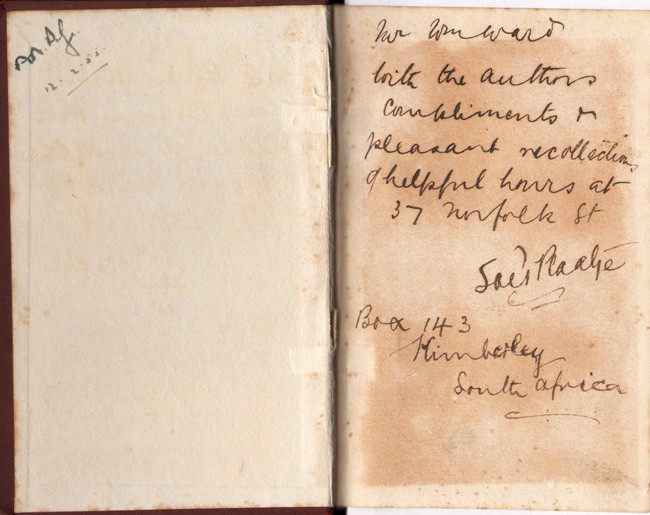 12.2.35.
Mr Wm Ward
With the authors
compliments &
pleasant recollections
of helpful hours at
37 Norfolk St
Sol T Plaatje
Box 143
Kimberley
South Africa